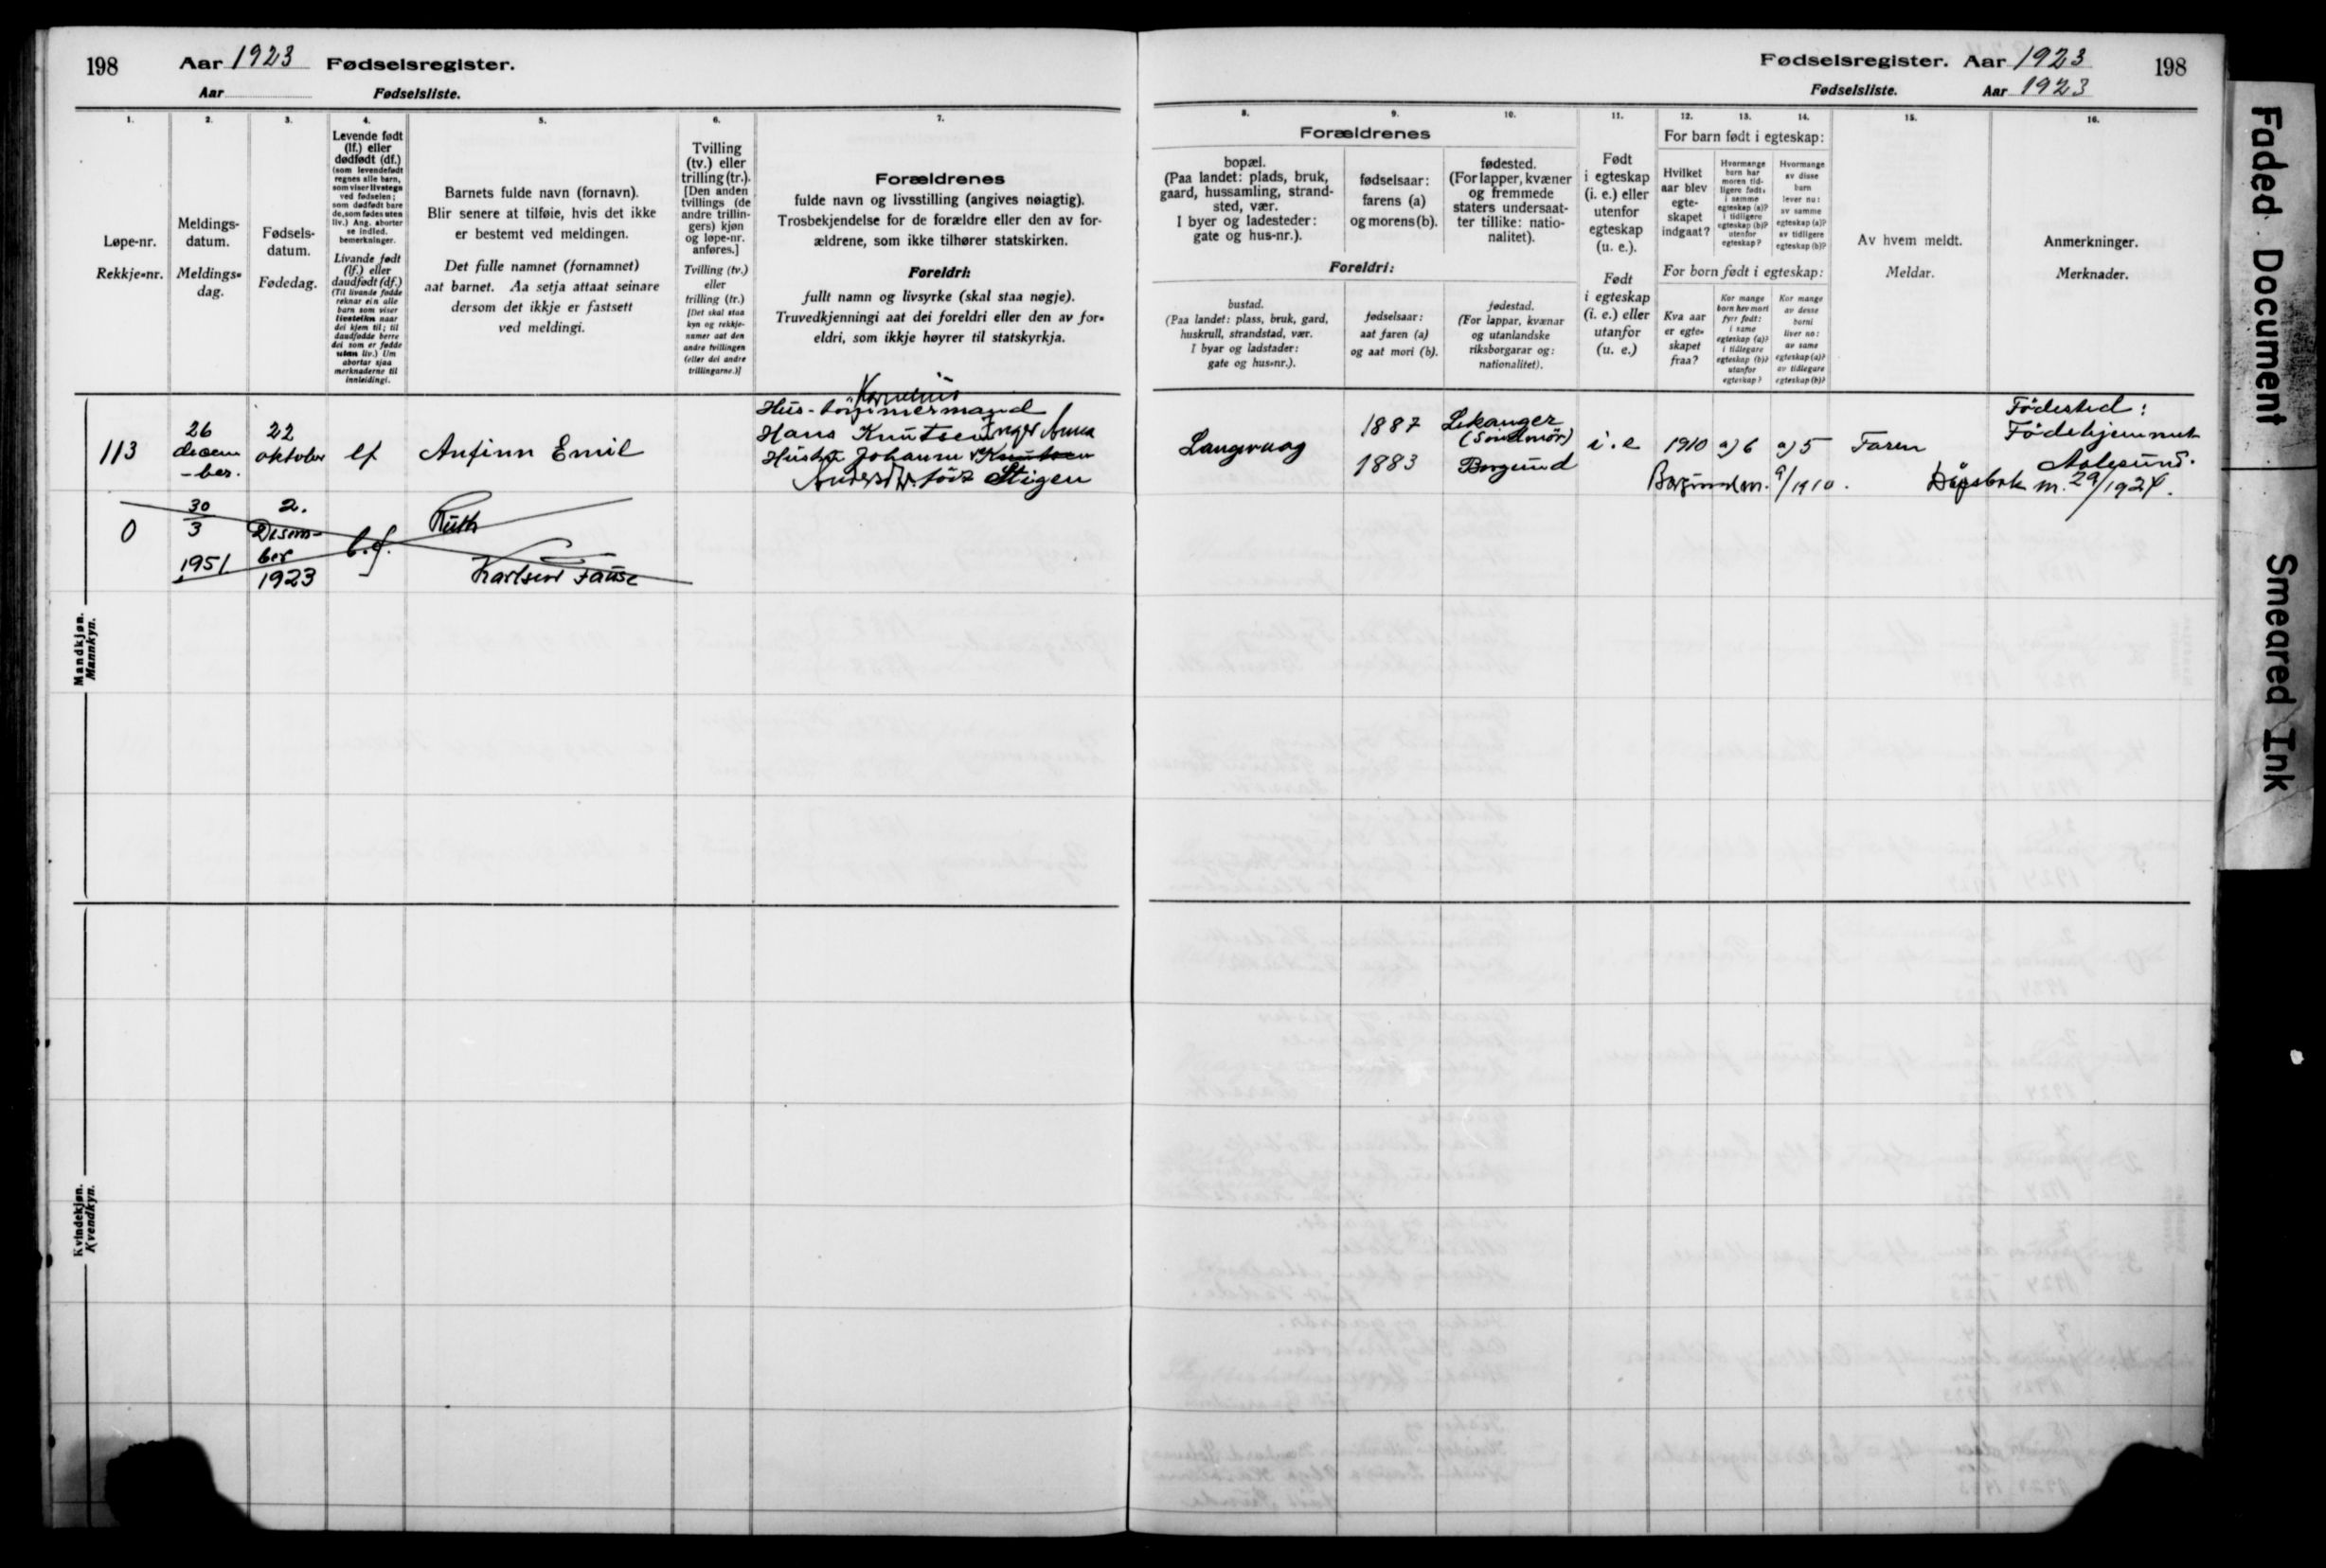 198
Aar 1923 Fødselsregister.
Aar Fødselsliste.
1. 2. 3. 4. 5. 6. 7.
Løpe-nr.
Rekkje-nr.
Meldings-
datum.
Meldings-
dag.
Fødsels-
datum.
Fødedag.
Levende født
(lf.) eller
dødfødt (df.)
(som levendefødt
regnes alle barn,
som viser livstegn
ved fødselen;
som dødfødt bare
de, som fødes uten
liv.) Ang. aborter
se indled.
bemerkninger.
Livande født
(lf.) eller
daudfødt (df.)
(Til livande fødde
reknar ein alle
barn som viser
livsteikn naar
dei kjem til; til
daudfødde berre
dei som er fødde
utan liv.) Um
abortar sjaa
merknaderne til
innleidingi.
Barnets fulde navn (fornavn).
Blir senere at tilføie, hvis det ikke
er bestemt ved meldingen.
Det fulle namnet (fornamnet)
aat barnet. Aa setja attaat seinare
dersom det ikkje er fastsett
ved meldingi.
Tvilling
(tv.) eller
trilling (tr.).
[Den anden
tvillings (de
andre trillin-
gers) kjøn
og løpe-nr.
anføres.]
Tvilling (tv.)
eller
trilling (tr.)
[Det skal staa
kyn og rekkje-
numer aat den
andre tvillingen
(eller dei andre
trillingarne.)]
Forældrenes
fulde navn og livsstilling (angives nøiagtig).
Trosbekjendelse for de forældre eller den av for-
ældrene, som ikke tilhører statskirken.
Foreldri:
fullt namn og livsyrke (skal staa nøgje).
Truvedkjenningi aat dei foreldri eller den av for-
eldri, som ikkje høyrer til statskyrkja.
Mandkjøn.
Mannkyn.
113
26
decem
-ber.
22
oktober
lf
Anfinn Emil
Kornelius
Hus-tømmermand
Hans Knutsen Inger Anna
Hustru Johanne Knutsen
Andersdtr. född Stigen
0
30
3
1951
2.
Desem-
ber
1923
l.f.
Ruth
Karlsen Fause
Kvindekjøn.
Kvendkyn.
Fødselsregister. Aar 1923
198
Fødselsliste. Aar 1923
8. 9. 10. 11. 12. 13. 14. 15. 16.
Forældrenes
bopæl.
(Paa landet: plads, bruk,
gaard, hussamling, strand-
sted, vær.
I byer og ladesteder:
gate og hus-nr.).
fødselsaar:
farens (a)
og morens (b).
fødested.
(For lapper, kvæner
og fremmede
staters undersaat-
ter tillike: natio-
nalitet).
Foreldri:
bustad.
(Paa landet: plass, bruk, gard,
huskrull, strandstad, vær.
I byar og ladstader:
gate og hus-nr.).
fødselsaar:
aat faren (a)
og aat mori (b).
fødestad.
(For lappar, kvænar
og utanlandske
riksborgarar og:
nationalitet).
Født
i egteskap
(i. e.) eller
utenfor
egteskap
(u. e.).
Født
i egteskap
(i. e.) eller
utanfor
(u. e.)
For barn født i egteskap:
Hvilket
aar blev
egte-
skapet
indgaat?
Hvormange
barn har
moren tid-
ligere født:
i samme
egteskap (a)?
i tidligere
egteskap (b)?
utenfor
egteskap?
Hvormange
av disse
barn
lever nu:
av samme
egteskap (a)?
av tidligere
egteskap (b)?
For born født i egteskap:
Kva aar
er egte-
skapet
fraa?
Kor mange
born hev mori
fyrr født:
i same
egteskap (a)?
i tidlegare
egteskap (b)?
utanfor
egteskap?
Kor mange
av desse
borni
liver no:
av same
egteskap (a)?
av tidlegare
egteskap (b)?
Av hvem meldt.
Meldar.
Anmerkninger.
Merknader.
Langevaag
1887
1883
Lekanger
(Söndmör)
Borgund
i. e
1910
a) 6
a) 5
Faren
Födested:
Födehjemmet
Aalesund.
Borgund m. 9/1910.
Dåpsbok m. 29/1924.
Faded Document
Smeared Ink